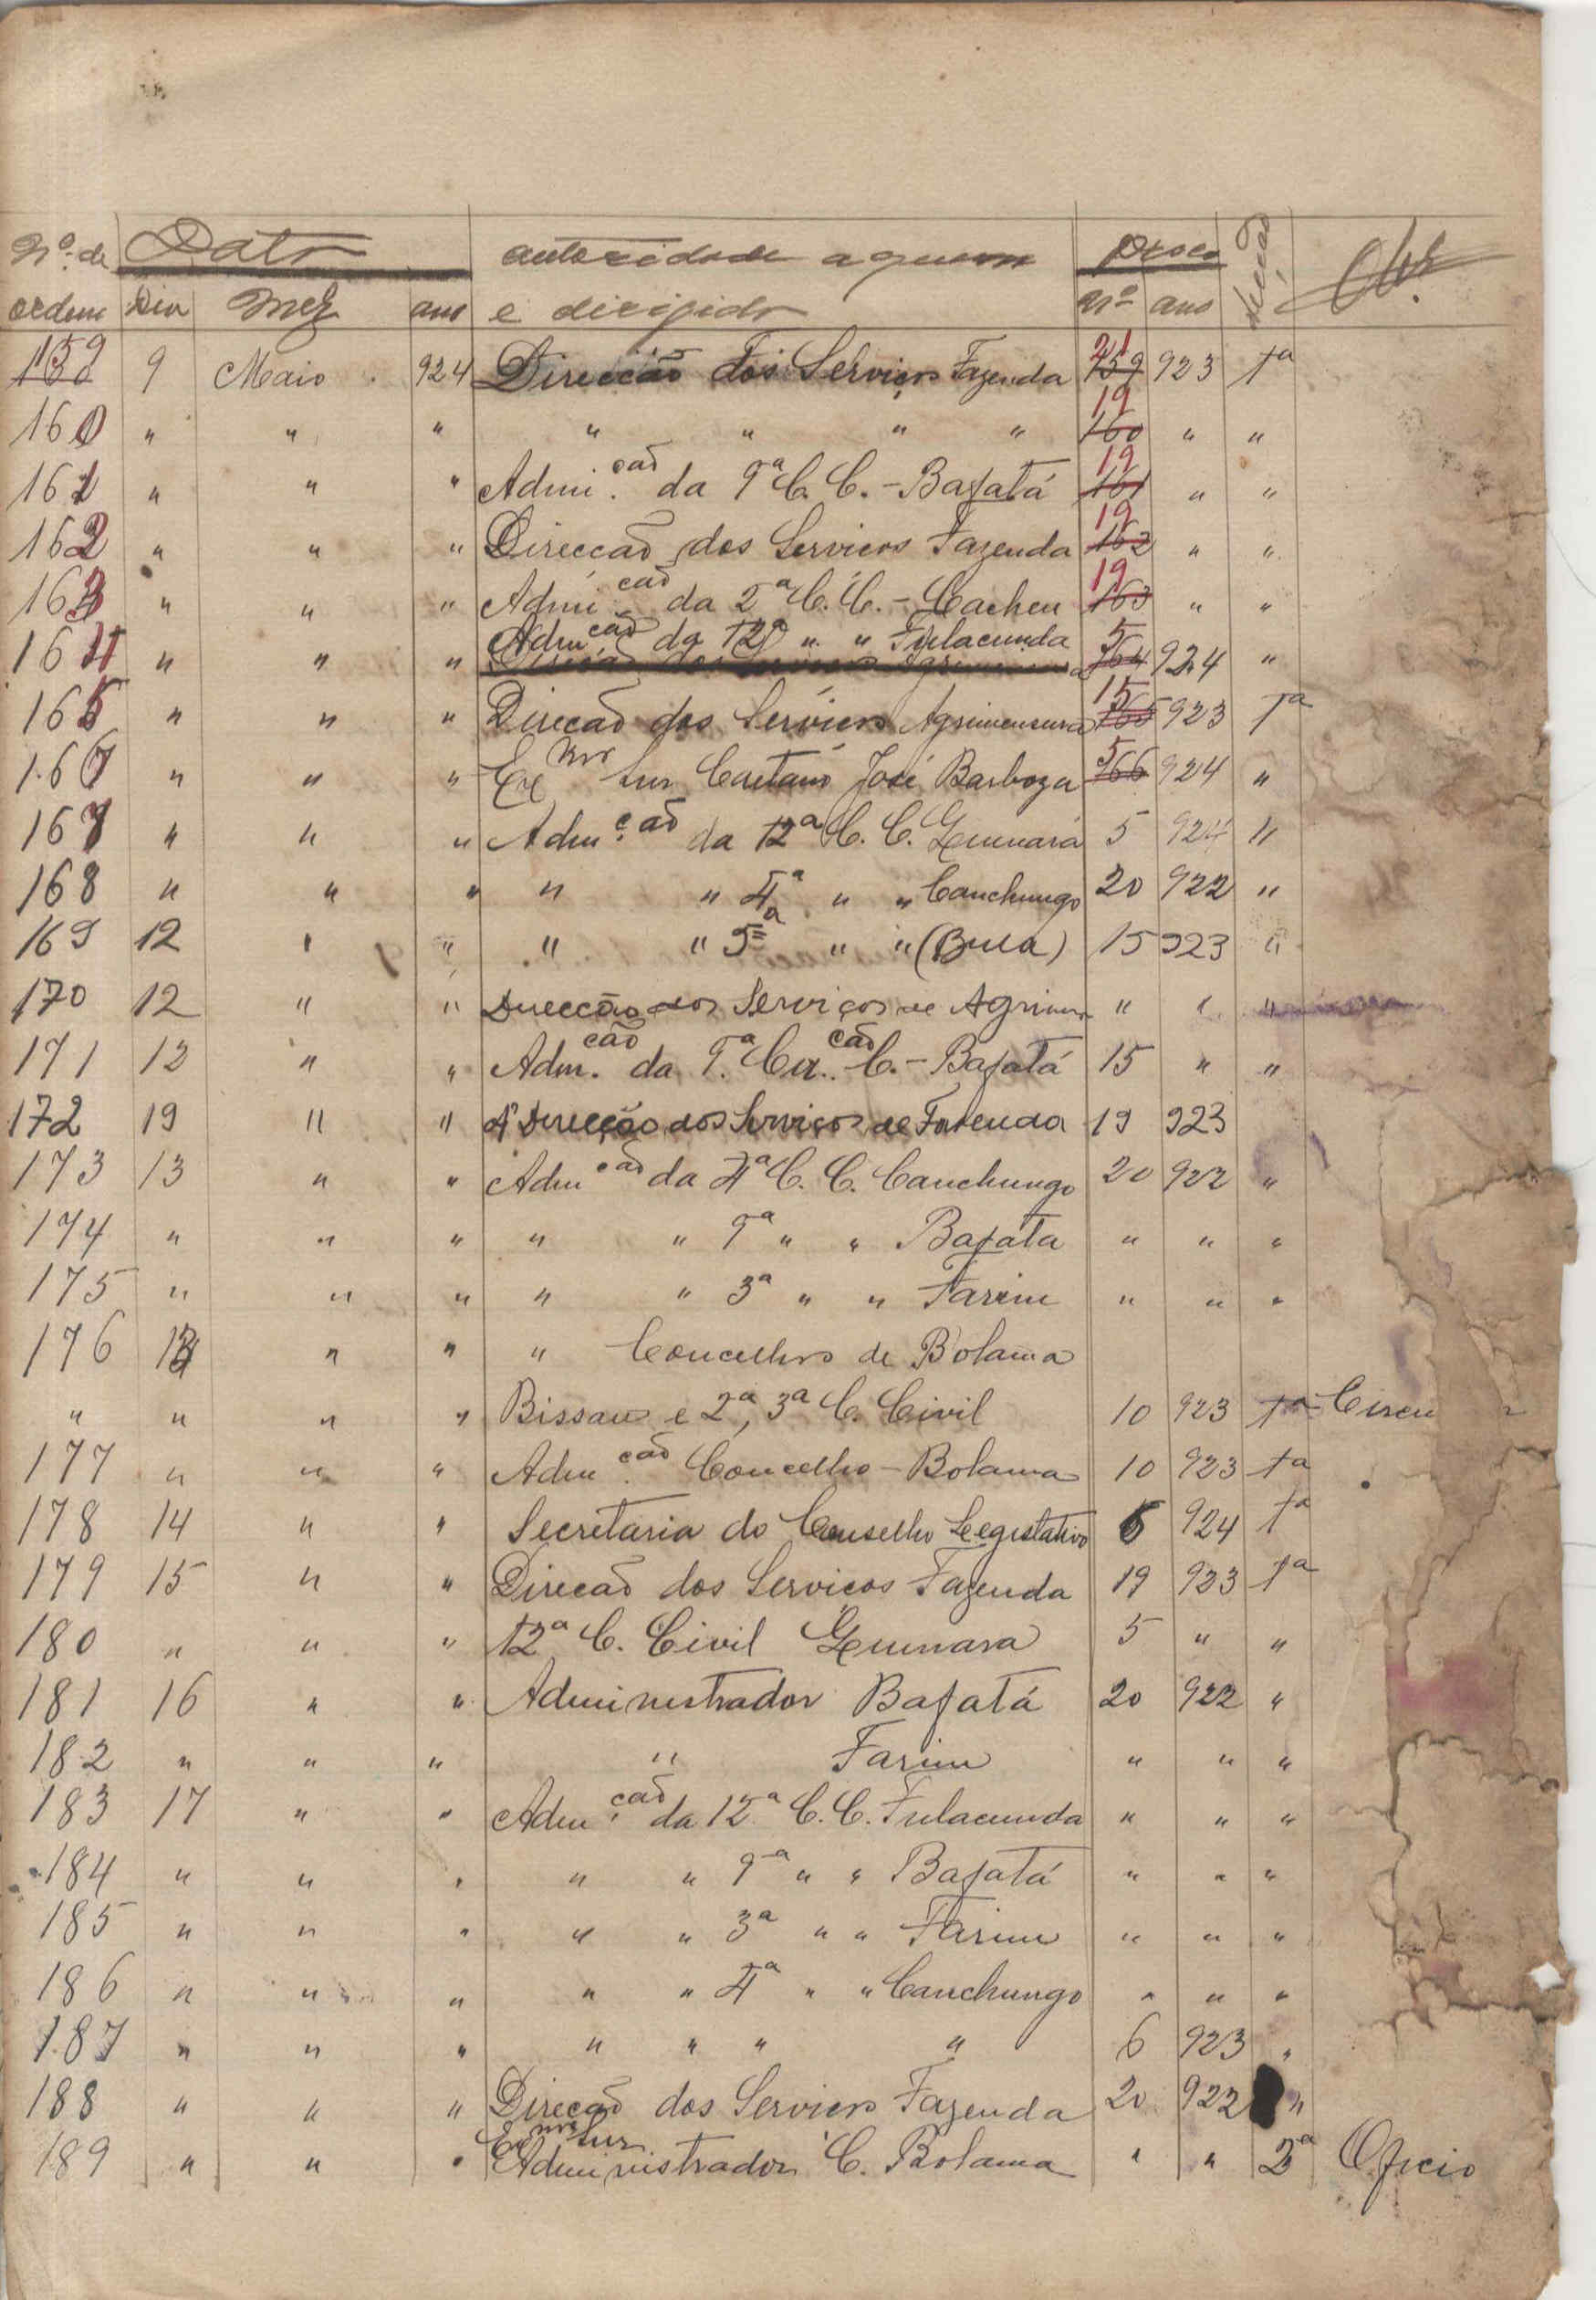 Nº de Data autoridade a quem Proc. Secção Obs.
ordem Dia Mez ano é dirigido Nº ano
159 9 Maio 924 Direcção dos Serviços Fazenda 21 159 923 1ª
160 " " " " " " " 19 160 " "
161 " " " Admi.ção da 9ª C. C. - Bafatá 19 161 " "
162 " " " Direcção dos Serviços Fazenda 19 162 " "
163 " " " Admi.ção da 2ª C. C. - Cacheu 19 163 " "
Admção da 12ª " " Fulacunda
164 " " " 5 164 924 "
165 " " " Direcão dos Serviços Agrimensura 15 165 923 1ª
166 " " " Exmo Snr Caetano José Barboza 5 166 924 "
167 " " " Adm.ção da 12ª C. C. Quinara 5 924 "
168 " " " " " 4ª " " Canchungo 20 922 "
169 12 " " " " 5ª " " (Bula) 15 923 "
170 12 " " Direcção dos Serviços de Agrim " " "
171 12 " " Adm.ção da 9ª Cir.ção C. - Bafatá 15 " "
172 19 " " Á Direcção dos Serviços de Fazenda 19 923
173 13 " " Admção da 4ª C. C. Canchungo 20 922 "
174 " " " " " 9ª " " Bafata " " "
175 " " " " " 3ª " " Farim " " "
176 13 " " " Concelhos de Bolama
" " " " Bissau e 2ª, 3ª C. Civil 10 923 1ª Circu
177 " " " Adm.ção Concelho - Bolama 10 923 1ª
178 14 " " Secretaria do Conselho Legislativo 6 924 1ª
179 15 " " Direcão dos Serviços Fazenda 19 923 1ª
180 " " " 12ª C. Civil Quinara 5 " "
181 16 " " Administrador Bafatá 20 922 "
182 " " " " Farim " " "
183 17 " " Adm.ção da 12ª C. C. Fulacunda " " "
184 " " " " " 9ª " " Bafatá " " "
185 " " " " " 3ª " " Farim " " "
186 " " " " " 4ª " " Canchungo " " "
187 " " " " " " " 6 923 "
188 " " " Direcão dos Serviços Fazenda 20 922 "
Exmo Snr
189 " " " Administrador C. Bolama " " 2ª Oficio